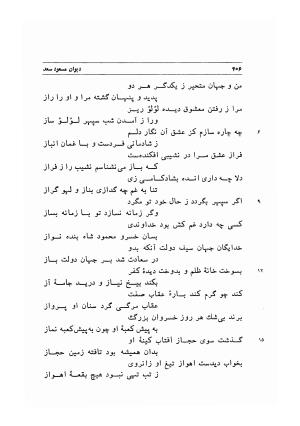 ۴۰۶ دیوان مسعود سعد
من و جهان متحیر ز یکدگر هر دو
پدید و پنهان گشته مرا و او را راز
مرا ز رفتن معشوق دیده لؤلؤ ریز
ورا ز آمدن شب سپهر لؤلؤ ساز
۶ چه چاره سازم کز عشق آن نگار دلم
ز شادمانی فردست و با غمان انباز
فراز عشق مرا در نشیبی افکندست
که باز می‌نشناسم نشیب را ز فراز
دلا چه داری انده بشادکامی زی
تنا به غم چه گدازی بناز و لهو گراز
۹ اگر سپهر بگردد ز حال خود تو مگرد
وگر زمانه نسازد تو با زمانه بساز
کسی چه دارد غم کش بود خداوندی
بسان خسرو محمود شاه بنده نواز
خدایگان جهان سیف دولت آنکه بدو
در سعادت شد بر جهان دولت باز
۱۲ بسوخت خانهٔ ظلم و بدوخت دیدهٔ کفر
بکند بیخ نیاز و درید جامهٔ آز
کند چو گرم کند بارهٔ عقاب صفت
عقاب مرگی گرد سنان او پرواز
برند بی‌شك هر روز خسروان بزرگ
به پیش کعبهٔ او چون به‌پیش‌کعبه نماز
۱۵ گذشت سوی حجاز آفتاب کینهٔ او
بدان همیشه بود تافته زمین حجاز
بخواب دیدست اهواز تیغ او زانروی
ز تب تهی نبود هیچ بقعهٔ اهواز